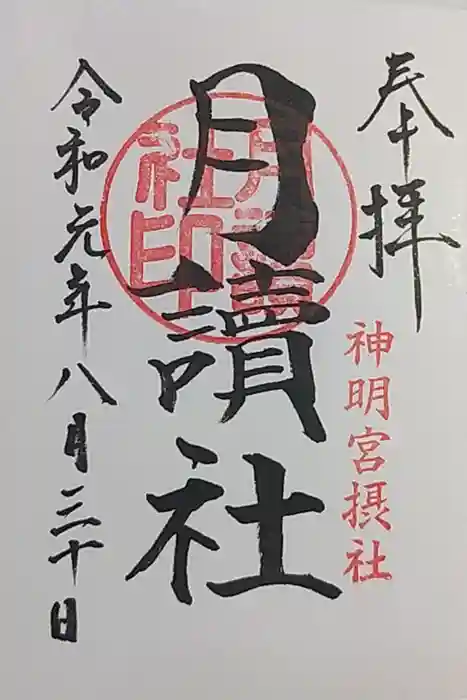 奉拝
神明宮摂社
月讀社
月讀社印
令和元年八月三十日